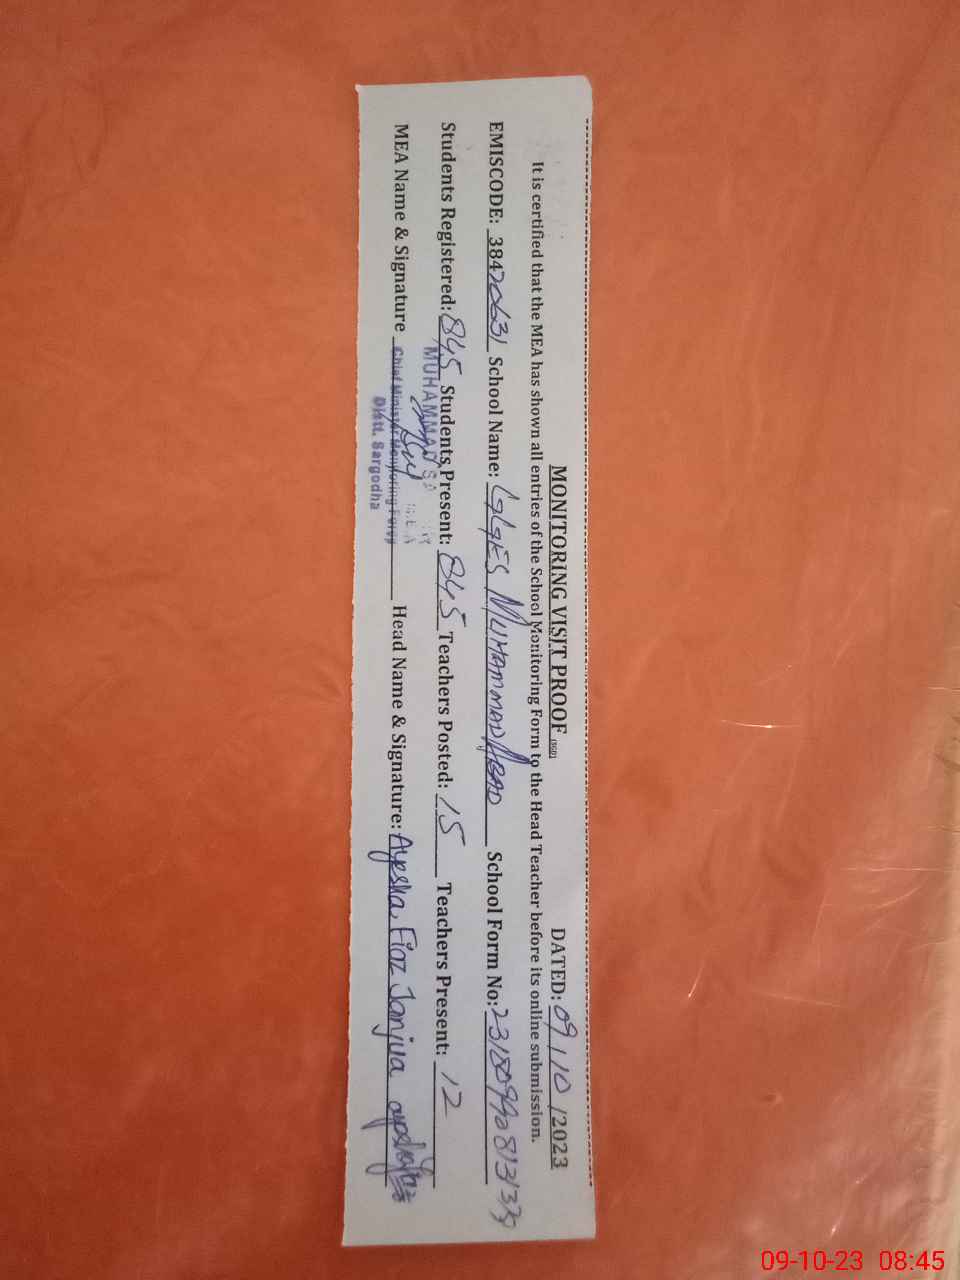 MONITORING VISIT PROOF (SGD) DATED: 09/10/2023
It is certified that the MEA has shown all entries of the School Monitoring Form to the Head Teacher before its online submission.
EMISCODE: 38420631 School Name: GGES MUHAMMAD ABAD School Form No:
Students Registered: 845 Students Present: 845 Teachers Posted: 15 Teachers Present: 12
MUHAMMAD
MEA Name & Signature Head Name & Signature: Ayesha Fiaz Janjua
Chief Minister Monitoring Force
Distt. Sargodha
09-10-23 08:45